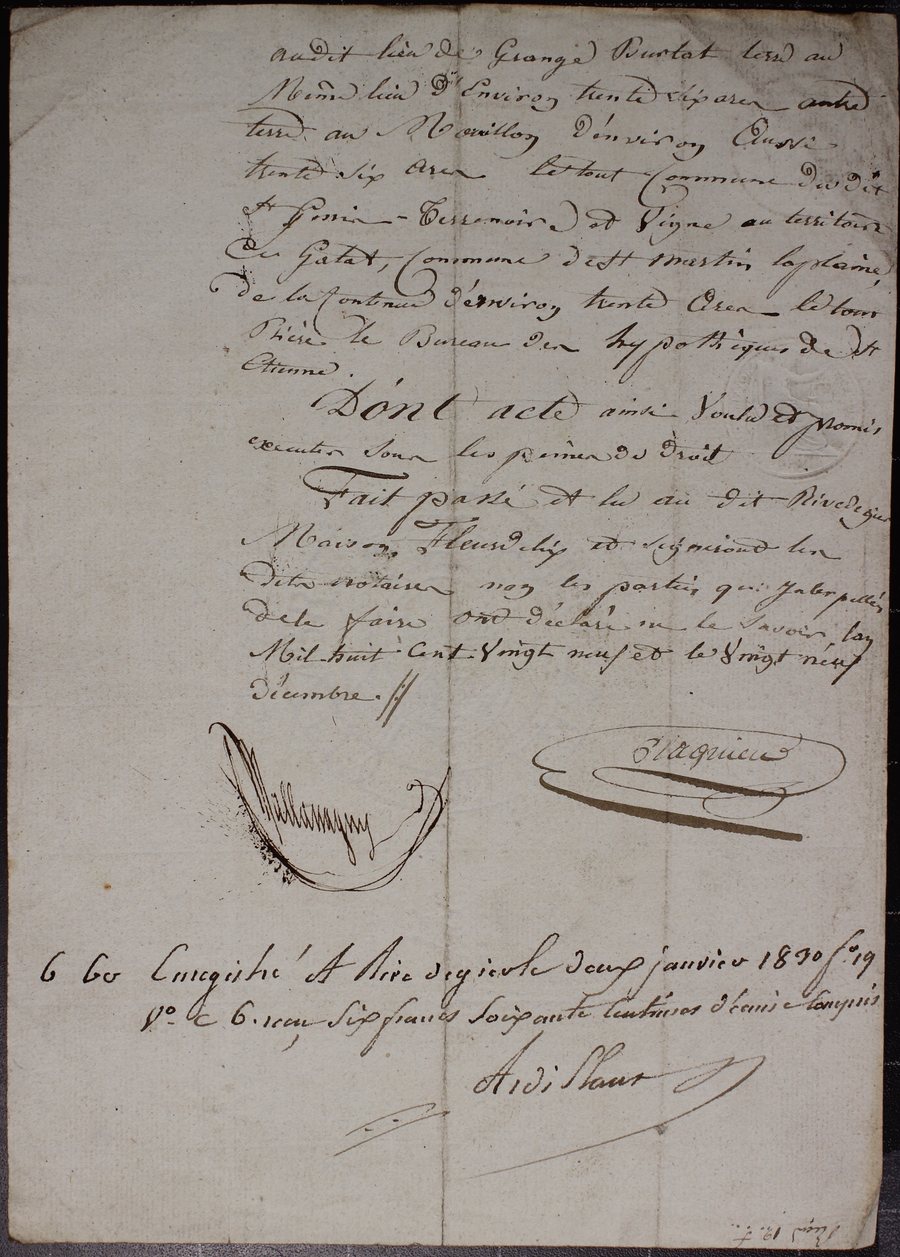 audit lieu de Grange Burlat terre au
Même lieu d'Environ trente six ares autre
terre au Mouillon d'environ Aussi
trente six ares le tout Commune du dit
St Genis-Terrenoire et Vigne au territoire
de Gatat, Commune de St martin laplaine,
de la Contenue d'environ trente Ares le tout
Rière le Bureau des hypothèques de St
Etienne.
Dont acte ainsi Voulu et promis
executer sous les peines de droit
Fait passé et lu au dit Rivedegier
Maison Fleurdelix et signeront les
dits notaires non les parties qui Interpellés
de le faire ont déclaré ne le Savoir, lan
Mil huit Cent Vingt neuf et le Vingt neuf
décembre.
6 60 Enregistré A Rive de gier le deux janvier 1830 fo 19
Vo. C 6. reçu Six francs soixante Centimes décime Compris